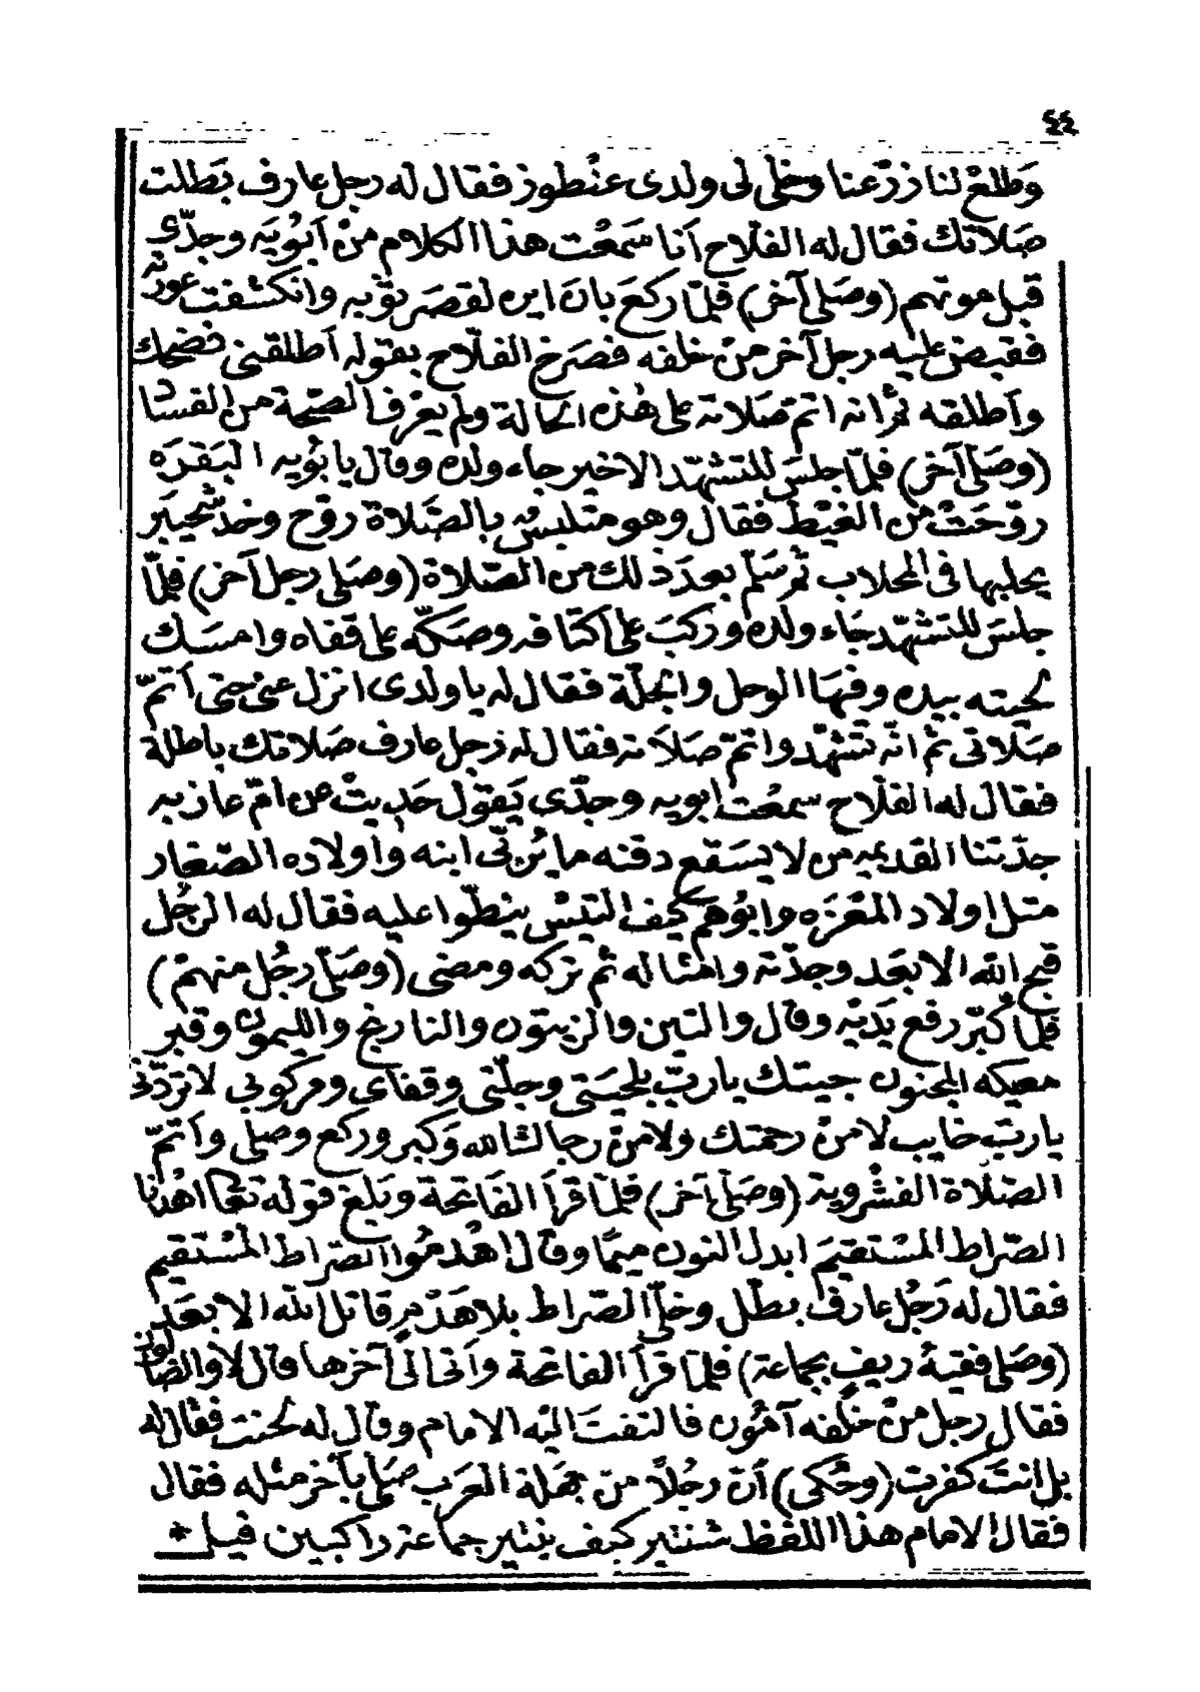 ٤٤
وَطلعْ لنا زرْعنا وخلّي لى ولدى عنْطوز فقال له رجل عارف بَطلت
صَلاتك فقال له الفلّاح اَنا سَمعْت هذا الكلام منْ اَبوُيَه وجدّى
قبل موتهم (وصَلى آخر) فلمّا ركعَ بانَ ايره لقصَر ثوْبه وانكشفت عورته
فقبض عليه رجل آخر منْ خلفه فصَرخ الفلّاح بقوله اَطلقنى فضحك
واَطلقه ثمّ انه اتمّ صَلاته على هٰذه الحالة ولم يعْرف الصّحة من الفسَاد
(وصَلى آخر) فلمّا جلسَ للتشهّد الاخير جاء ولده وقال يا بوُيه البَقرَه
روّحَتْ من الغيْط فقال وهو متلبس بالصَّلاة روّح وخد شحيبَر
يحلبها فى المحلاب ثم سَلّم بعد ذلك من الصّلاة (وصَلى رجل آخر) فلمّا
جلسَ للتشهّد جَاء ولده وركبَ على اكتافه وصَكّه على قفاه وامسَك
لحيته بيده وفيهَا الوحل والجلّة فقال له يا ولدى انزل عنى حتى اَتمّ
صَلاتى ثمّ انّه تشهّد واتمّ صَلاَته فقال له رَجل عارف صَلاتك باطلة
فقال له الفلّاح سمعْت ابويه وجدّى يَقول حَديثْ عن امّ عازبه
جدّتنا القديمه من لا يسَقع دقنه ما يُربّى ابنه واَولاده الصّغار
مثل اولاد المعْزَه وابوُهم كيف التيْس ينطّوا عليه فقال له الرجُل
قبح الله الابعَد وجدّته وامثاله ثم تركه ومضى (وصَلّى رجُل منهمْ)
فلما كبّر رفع يَديْه وقال والتين والزيتون والنارنج والليمون وقبر
معيكه المجنون جيتك ياربّ بلحيَتى وجلّتى وقفاى ومركوبى لا تردّنى
ياربّ خايب لا منْ رحمتك ولا منْ رجا لشا لله وَكبر وركع وصلى واَتمّ
الصّلاة الفشْرويه (وصَلى آخر) فلمّا قرأ الفَاتحة وبَلغ قوله تعَا اهْدنا
الصّراط المسْتقيمَ ابدل النون ميمًا وقال اهْدمُوا الصّراط المسْتقيم
فقال له رَجُل عارف بطّل وخلّى الصّراط بلا هَدْم قاتل الله الابعَد
(وصَلى فقيهُ ريفٍ بجماعة) فلمّا قرأ الفاتحة واَتى الى آخرها قال لا والضالون
فقال رجل منْ خلْفه آمُون فالتفتَ اليْه الامام وقال له لحنت فقال له
بل انتَ كفرت (وحُكى) أن رجُلاً من جهلة العَرب صَلى بآخر مثله فقال
فقال الامام هذا اللفظ شنتير كيف بنتير جماعة راكبين فيل *